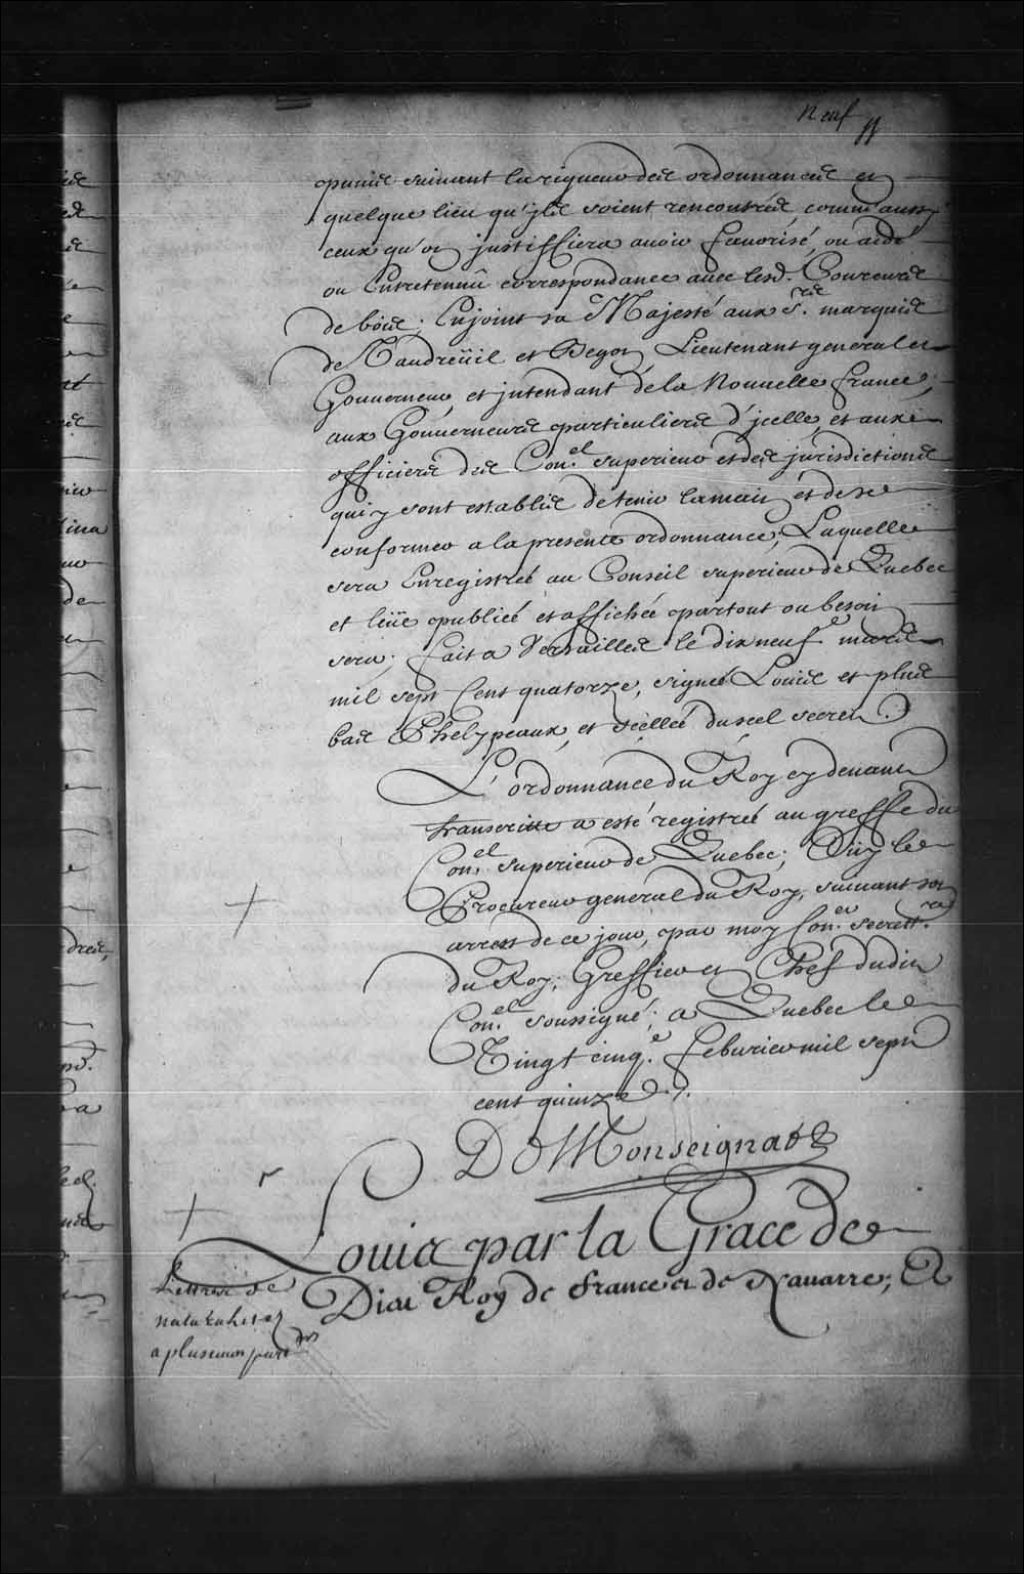 neuf
punis suivant la rigueur des ordonnances en
quelque lieu qu'jls soient rencontrés, comm'aussy
ceux qu'on justiffiera avoir favorisé, ou aidé
ou Entretennû correspondance avec lesd. Coureurs
de bois; Enjoint sa Majesté aux Srs. marquis
de Vaudreüil et Begon, Lieutenant general et
Gouverneur, et jntendant de la Nouvelle france,
aux Gouverneurs particuliers d'jcelle, et aux
officiers des Conel. superieur et des jurisdictions
qui y sont establis de tenir la main, et de se
conformer a la presente ordonnance, Laquelle
sera Enregistrée au Conseil superieur de Quebec
et leüe publiée et affichée partout ou besoin
sera; fait a Versailles le dix neufe mars
mil sept Cent quatorze, signé Louis et plus
bas Phelypeaux, et scellée du scel secret.
L'ordonnance du Roy cy devant
transcritte a esté registrée au greffe du
Conel. superieur de Quebec; Ouy le
Procureur general du Roy, suivant son
arrest de ce jour, par moy Coner. secrett.re
du Roy, Greffier en Chef dudit
Conel. soussigné; a Quebec le
Vingt cinqe. feburier mil sept
cent quinze.
DeMonseignat
Louis par la Grace de
Dieu Roy de france et de Navarre; A
Lettres de
naturalité
a plusieurs